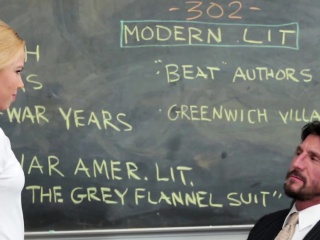 - 302 -
MODERN LIT
"BEAT" AUTHORS
WAR YEARS
GREENWICH
AMER. LIT.
THE GREY FLANNEL SUIT"